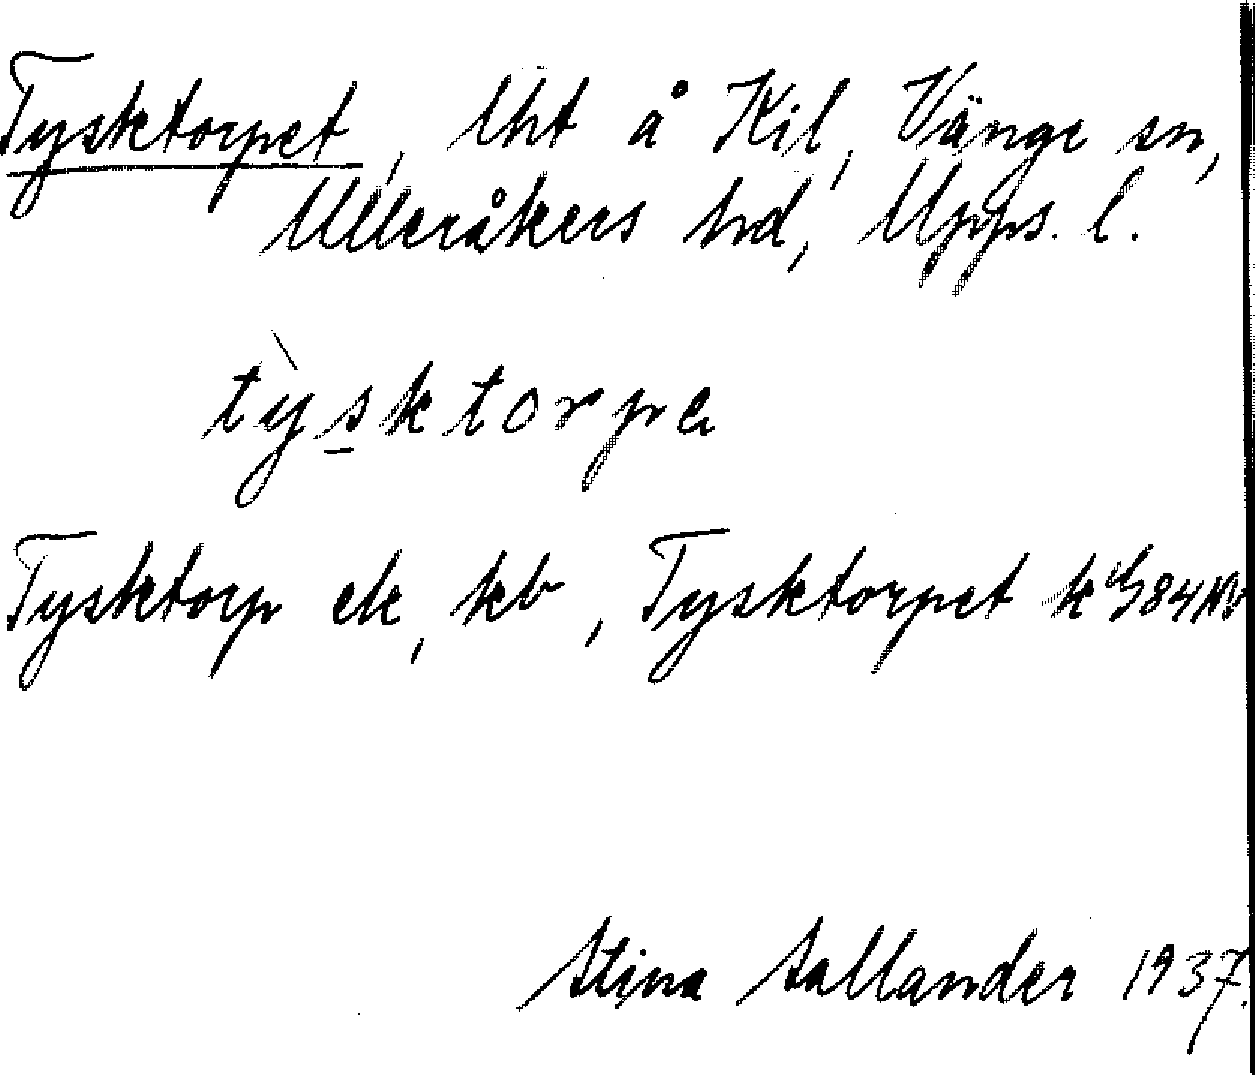 Tysktorpet, lht å Kil, Vänge sn,
Ulleråkers hd, Upps. l.
tỳsktorpa
Tysktorp ek, kb, Tysktorpet k G84NV
Stina Sallander 1937.